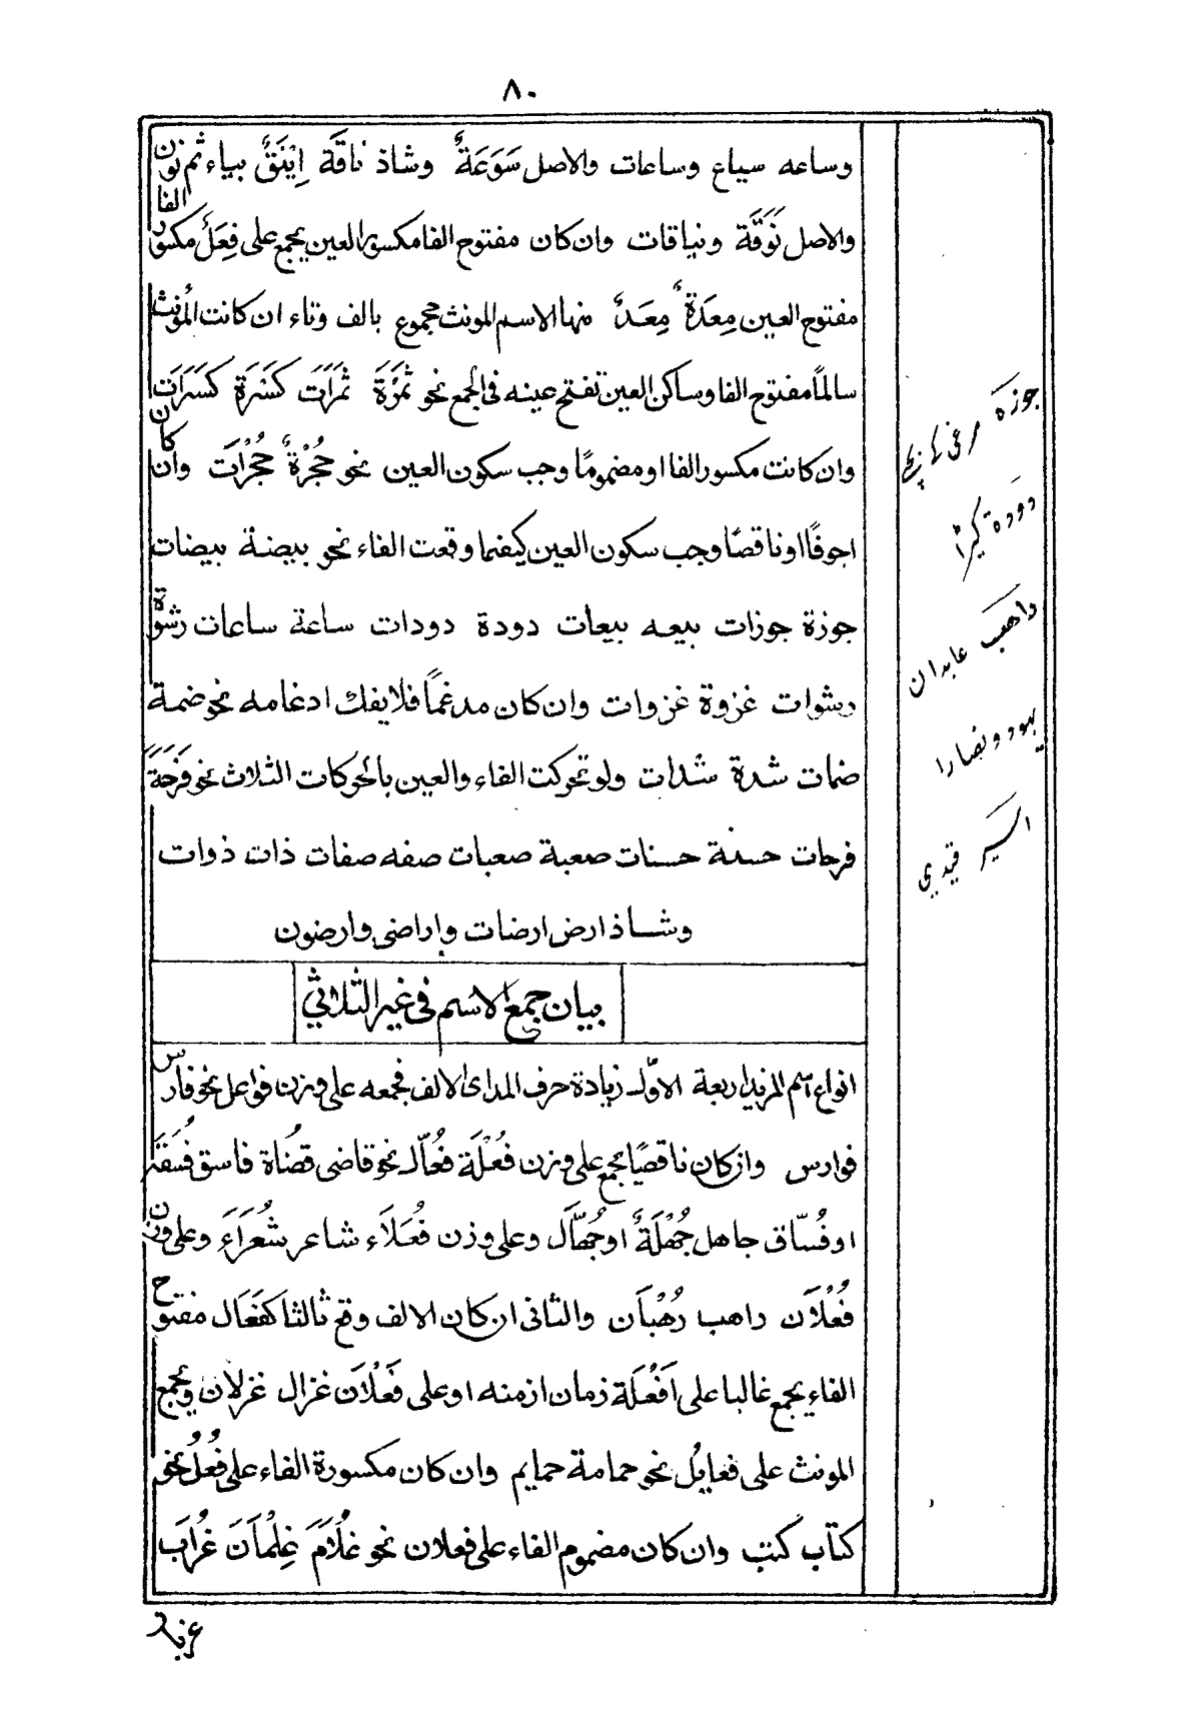 ٨٠
وساعه سياع وساعات والاصل سَوَعَةٌ وشاذ ناقَة اِيْنَقٌ بياء ثم نون
والاصل نَوَقَة ونياقات وان كان مفتوح الفا مكسور العين يجمع على فِعَلٌ مكسور الفا
مفتوح العين مِعِدَةٌ مِعَدٌ منها الاسم المونث مجموع بالف وتاء ان كانت المؤنث
سالماً مفتوح الفا وساكن العين تفتح عينه فى الجمع نحو ثَمْرَة ثَمَرَات كَسْرَة كَسَرَات
وان كانت مكسور الفا او مضمومًا وجب سكون العين نحو حُجْرَةٌ حُجْرَات وان كان
اجوفًا او ناقصًا وجب سكون العين كيفما وقعت الفاء نحو بيضة بيضات
جوزة جوزات بيعه بيعات دودة دودات ساعة ساعات رشوة
رشوات غزوة غزوات وان كان مدغمًا فلا يفك ادغامه نحو ضمة
ضمات شدة شدات ولو تحركت الفاء والعين بالحركات الثلاث نحو فَرَحَةَ
فرحات حسنة حسنات صعبة صعبات صفه صفات ذات ذوات
وشاذ ارض ارضات واراضى وارضون
بيان جمع الاسم فى غير الثلاثي
انواع اسم المزيد اربعة الاوّل زيادة حرف المد اى الالف فجمعه على وزن فواعل نحو فارس
فوارس وان كان ناقصًا يجمع على وزن فُعْلَة فُعّال نحو قاضى قضُاة فاسق فُسَقَة
او فُسّاق جاهل جُهْلَةٌ او جُهّال وعلى وزن فُعَلَاء شاعر شُعَرَاءَ وعلى وزن
فُعْلَان راهب رُهْبَان والثانى ان كان الالف وقع ثالثا كفَعَال مفتوح
الفاء يجمع غالبا على اَفْعُلَة زمان ازمنه او على فَعْلَان غزال غزلان ويجمع
المونث على فعايل نحو حمامة حمايم وان كان مكسورة الفاء على فُعُلْ نحو
كتاب كتب وان كان مضموم الفاء على فعلان نحو غُلَامَ غِلْمَانَ غُرَاب
جوزه مرغى كا بچے
دوده كيڑا
راهب عابدان
يهود ونصارا
اسير قيدي